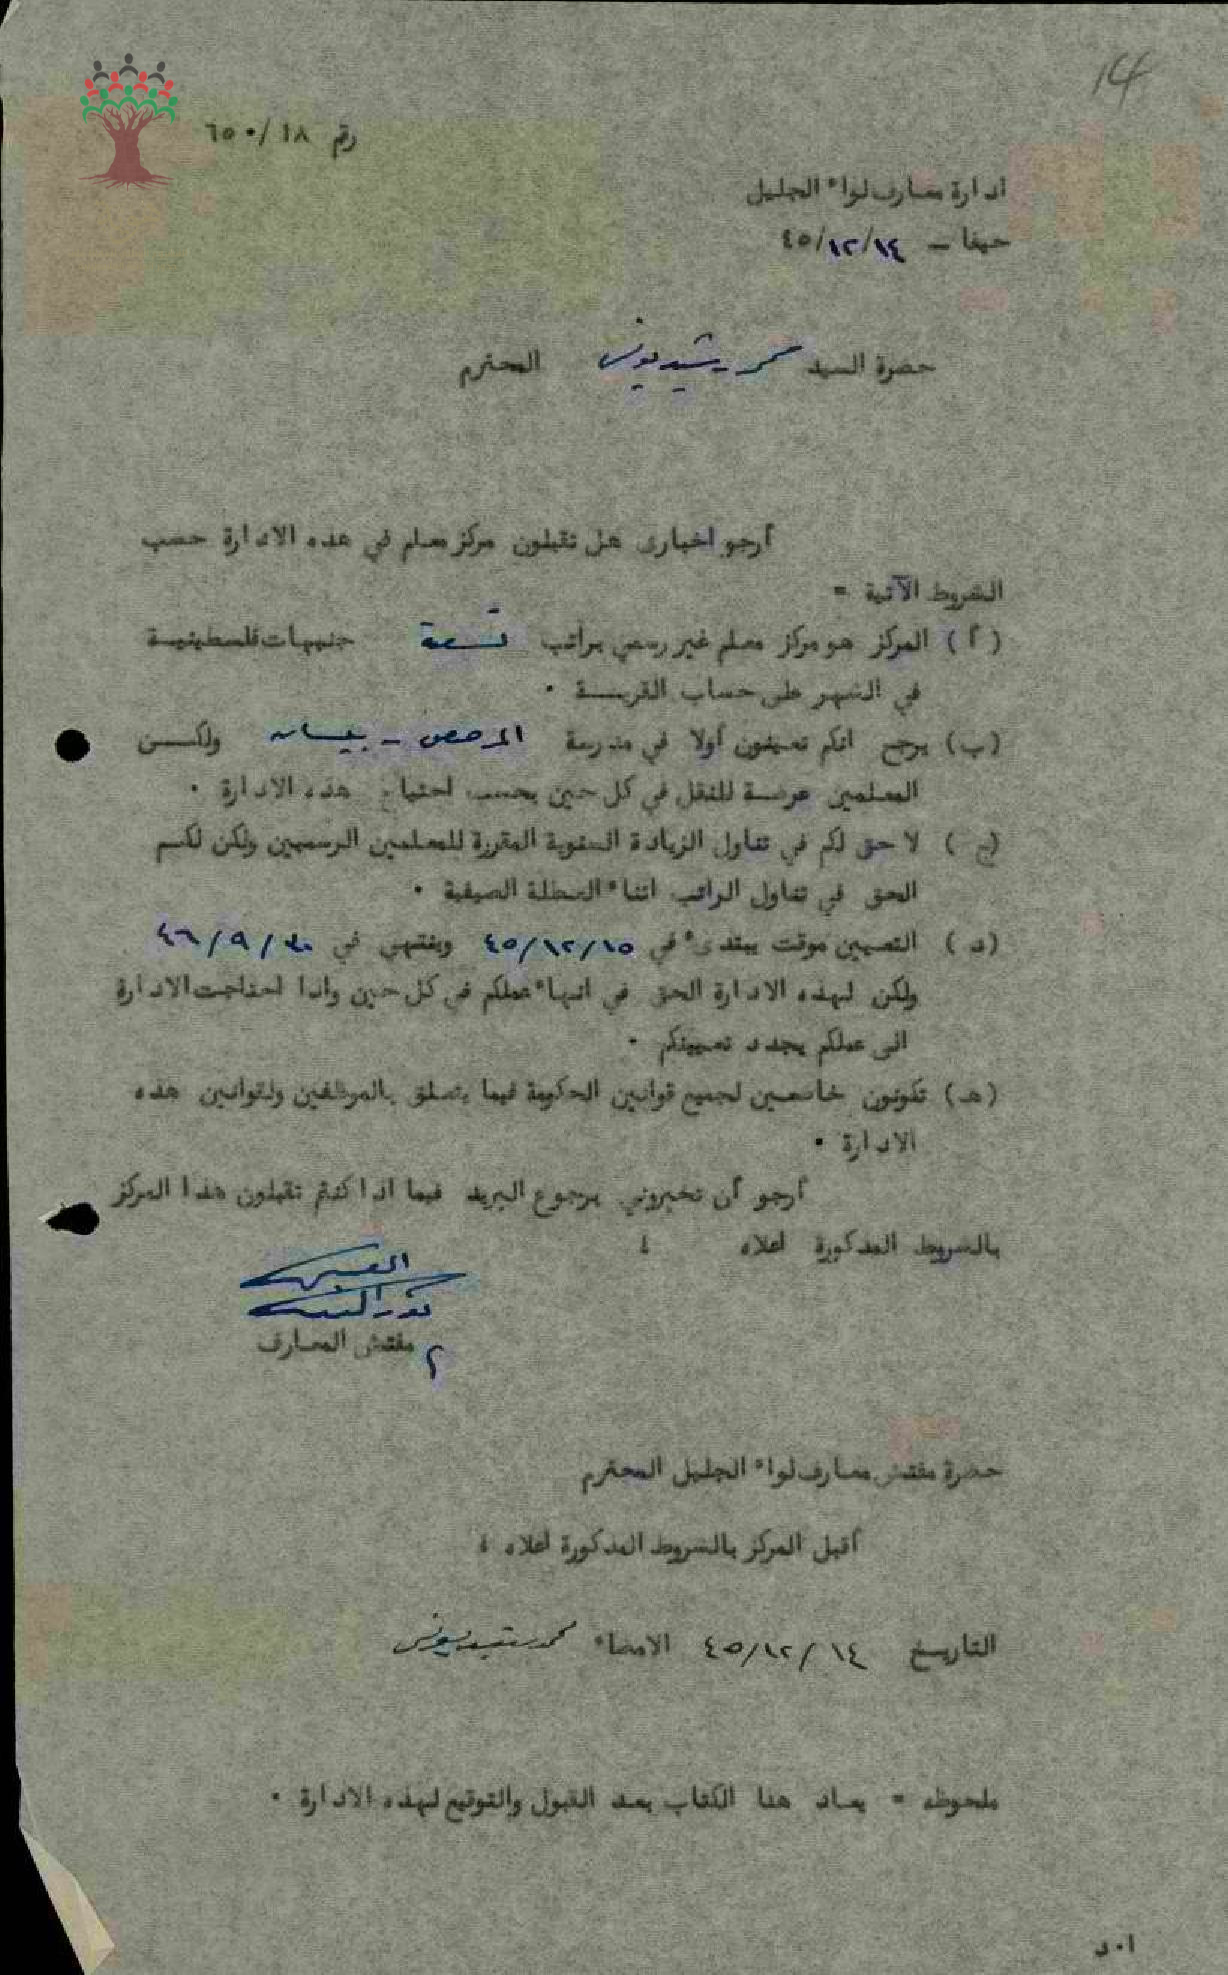 14
رقم ٦٥٠/١٨
ادارة معارف لواء الجليل
حيفا – ٤٥/١٢/١٤
حضرة السيد محمد رشيد يونس المحترم
أرجو اخباري هل تقبلون مركز معلم في هذه الادارة حسب
الشروط الآتية =
(أ) المركز هو مركز معلم غير رسمي براتب تسعة جنيهات فلسطينية
في الشهر على حساب القرية ٠
(ب) يرجح انكم تعينون أولا في مدرسة المرصص – بيسان ولكن
المعلمين عرضة للنقل في كل حين بحسب احتياج هذه الادارة ٠
(ج) لا حق لكم في تناول الزيادة السنوية المقررة للمعلمين الرسميين ولكن لكم
الحق في تناول الراتب اثناء العطلة الصيفية ٠
(د) التعيين موقت يبتدىء في ٤٥/١٢/١٥ وينتهي في ٤٦/٩/٣٠
ولكن لهذه الادارة الحق في انهاء عملكم في كل حين واذا احتاجت الادارة
الى عملكم يجدد تعيينكم ٠
(هـ) تكونون خاضعين لجميع قوانين الحكومة فيما يتعلق بالموظفين ولقوانين هذه
الادارة ٠
أرجو أن تخبروني برجوع البريد فيما اذا كنتم تقبلون هذا المركز
بالشروط المذكورة اعلاه ؛
مفتش المعارف
حضرة مفتش معارف لواء الجليل المحترم
أقبل المركز بالشروط المذكورة اعلاه ؛
التاريخ ٤٥/١٢/١٤ الامضاء محمد رشيد يونس
ملحوظه = يعاد هذا الكتاب بعد القبول والتوقيع لهذه الادارة ٠
ا٠د